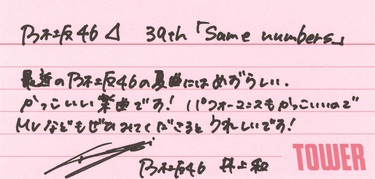 乃木坂46⊿ 39th「Same numbers」
最近の乃木坂46の夏曲にはめずらしい、
かっこいい楽曲です！パフォーマンスもかっこいいので
MVなどもぜひみてくださるとうれしいです！
乃木坂46 井上和
TOWER